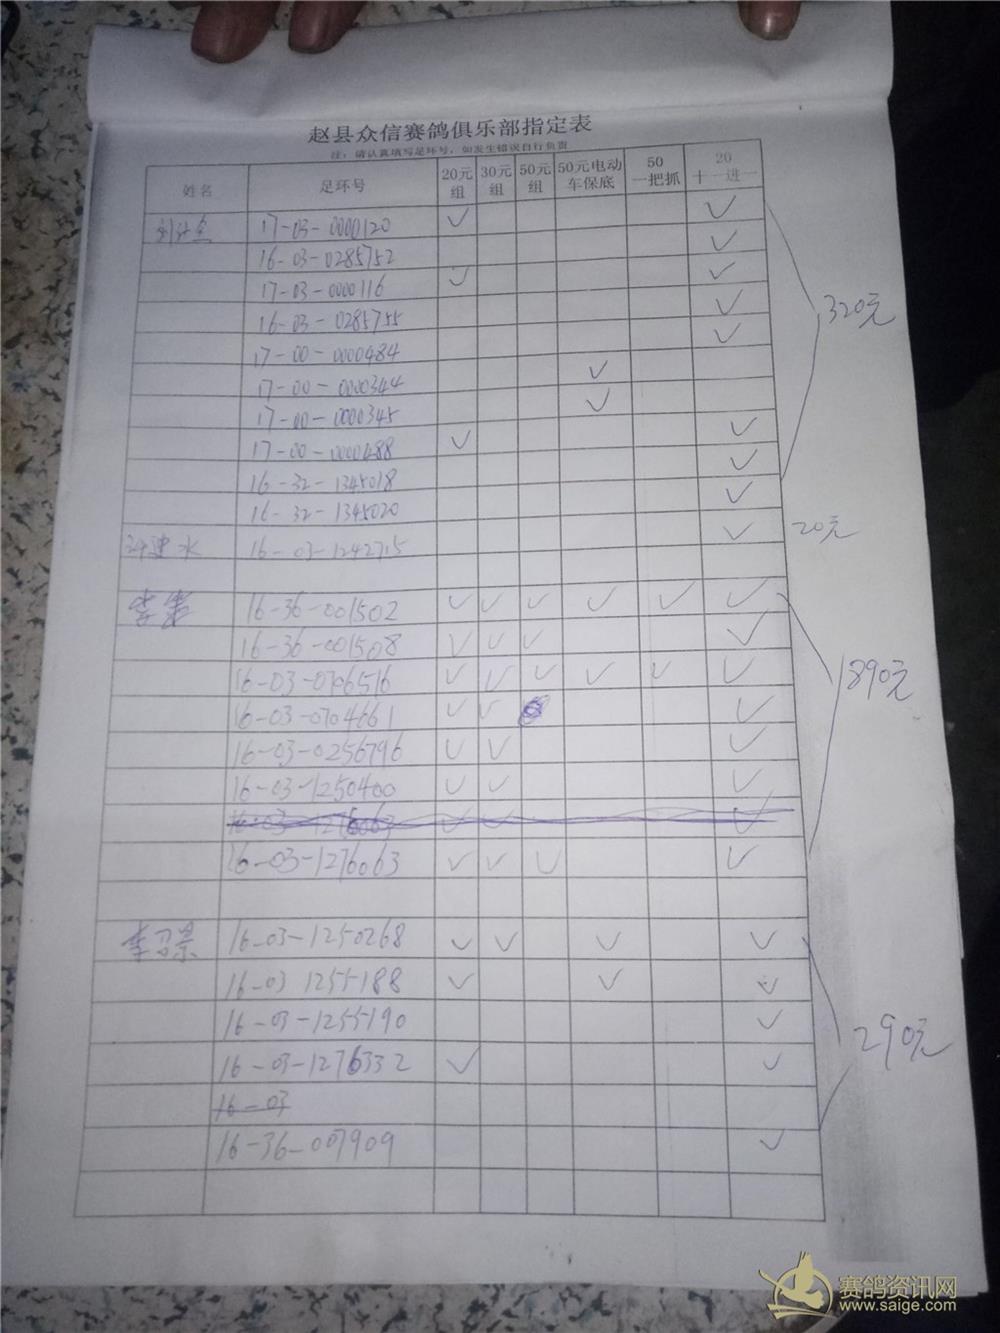 赵县众信赛鸽俱乐部指定表
注：请认真填写足环号，如发生错误自行负责
姓名 足环号 20元组 30元组 50元组 50元电动车保底 50一把抓 20十一进一
17-03-0000120 ✓ ✓
16-03-0285752 ✓
17-03-0000116 ✓ ✓
16-03-0285755 ✓
320元
17-00-0000484 ✓
17-00-0000344 ✓
17-00-0000345 ✓
17-00-0000488 ✓ ✓
16-32-1345018 ✓
16-32-1345020 ✓
16-03-1242715 ✓ 20元
16-36-001502 ✓ ✓ ✓ ✓ ✓ ✓
16-36-001508 ✓ ✓ ✓ ✓
16-03-0706516 ✓ ✓ ✓ ✓ ✓ ✓
1890元
16-03-0704661 ✓ ✓ ✓
16-03-0256796 ✓ ✓ ✓
16-03-1250400 ✓ ✓ ✓
16-03-1276063 ✓ ✓ ✓
16-03-1276063 ✓ ✓ ✓ ✓
李习景 16-03-1250268 ✓ ✓ ✓ ✓
16-03 1255188 ✓ ✓ ✓
16-03-1255190 ✓
290元
16-03-1276332 ✓ ✓
16-03
16-36-007909 ✓
赛鸽资讯网
www.saige.com